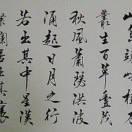 叢生百草豐茂
秋風蕭瑟洪波
涌起日月之行
若出其中星漢
爛若出其裏